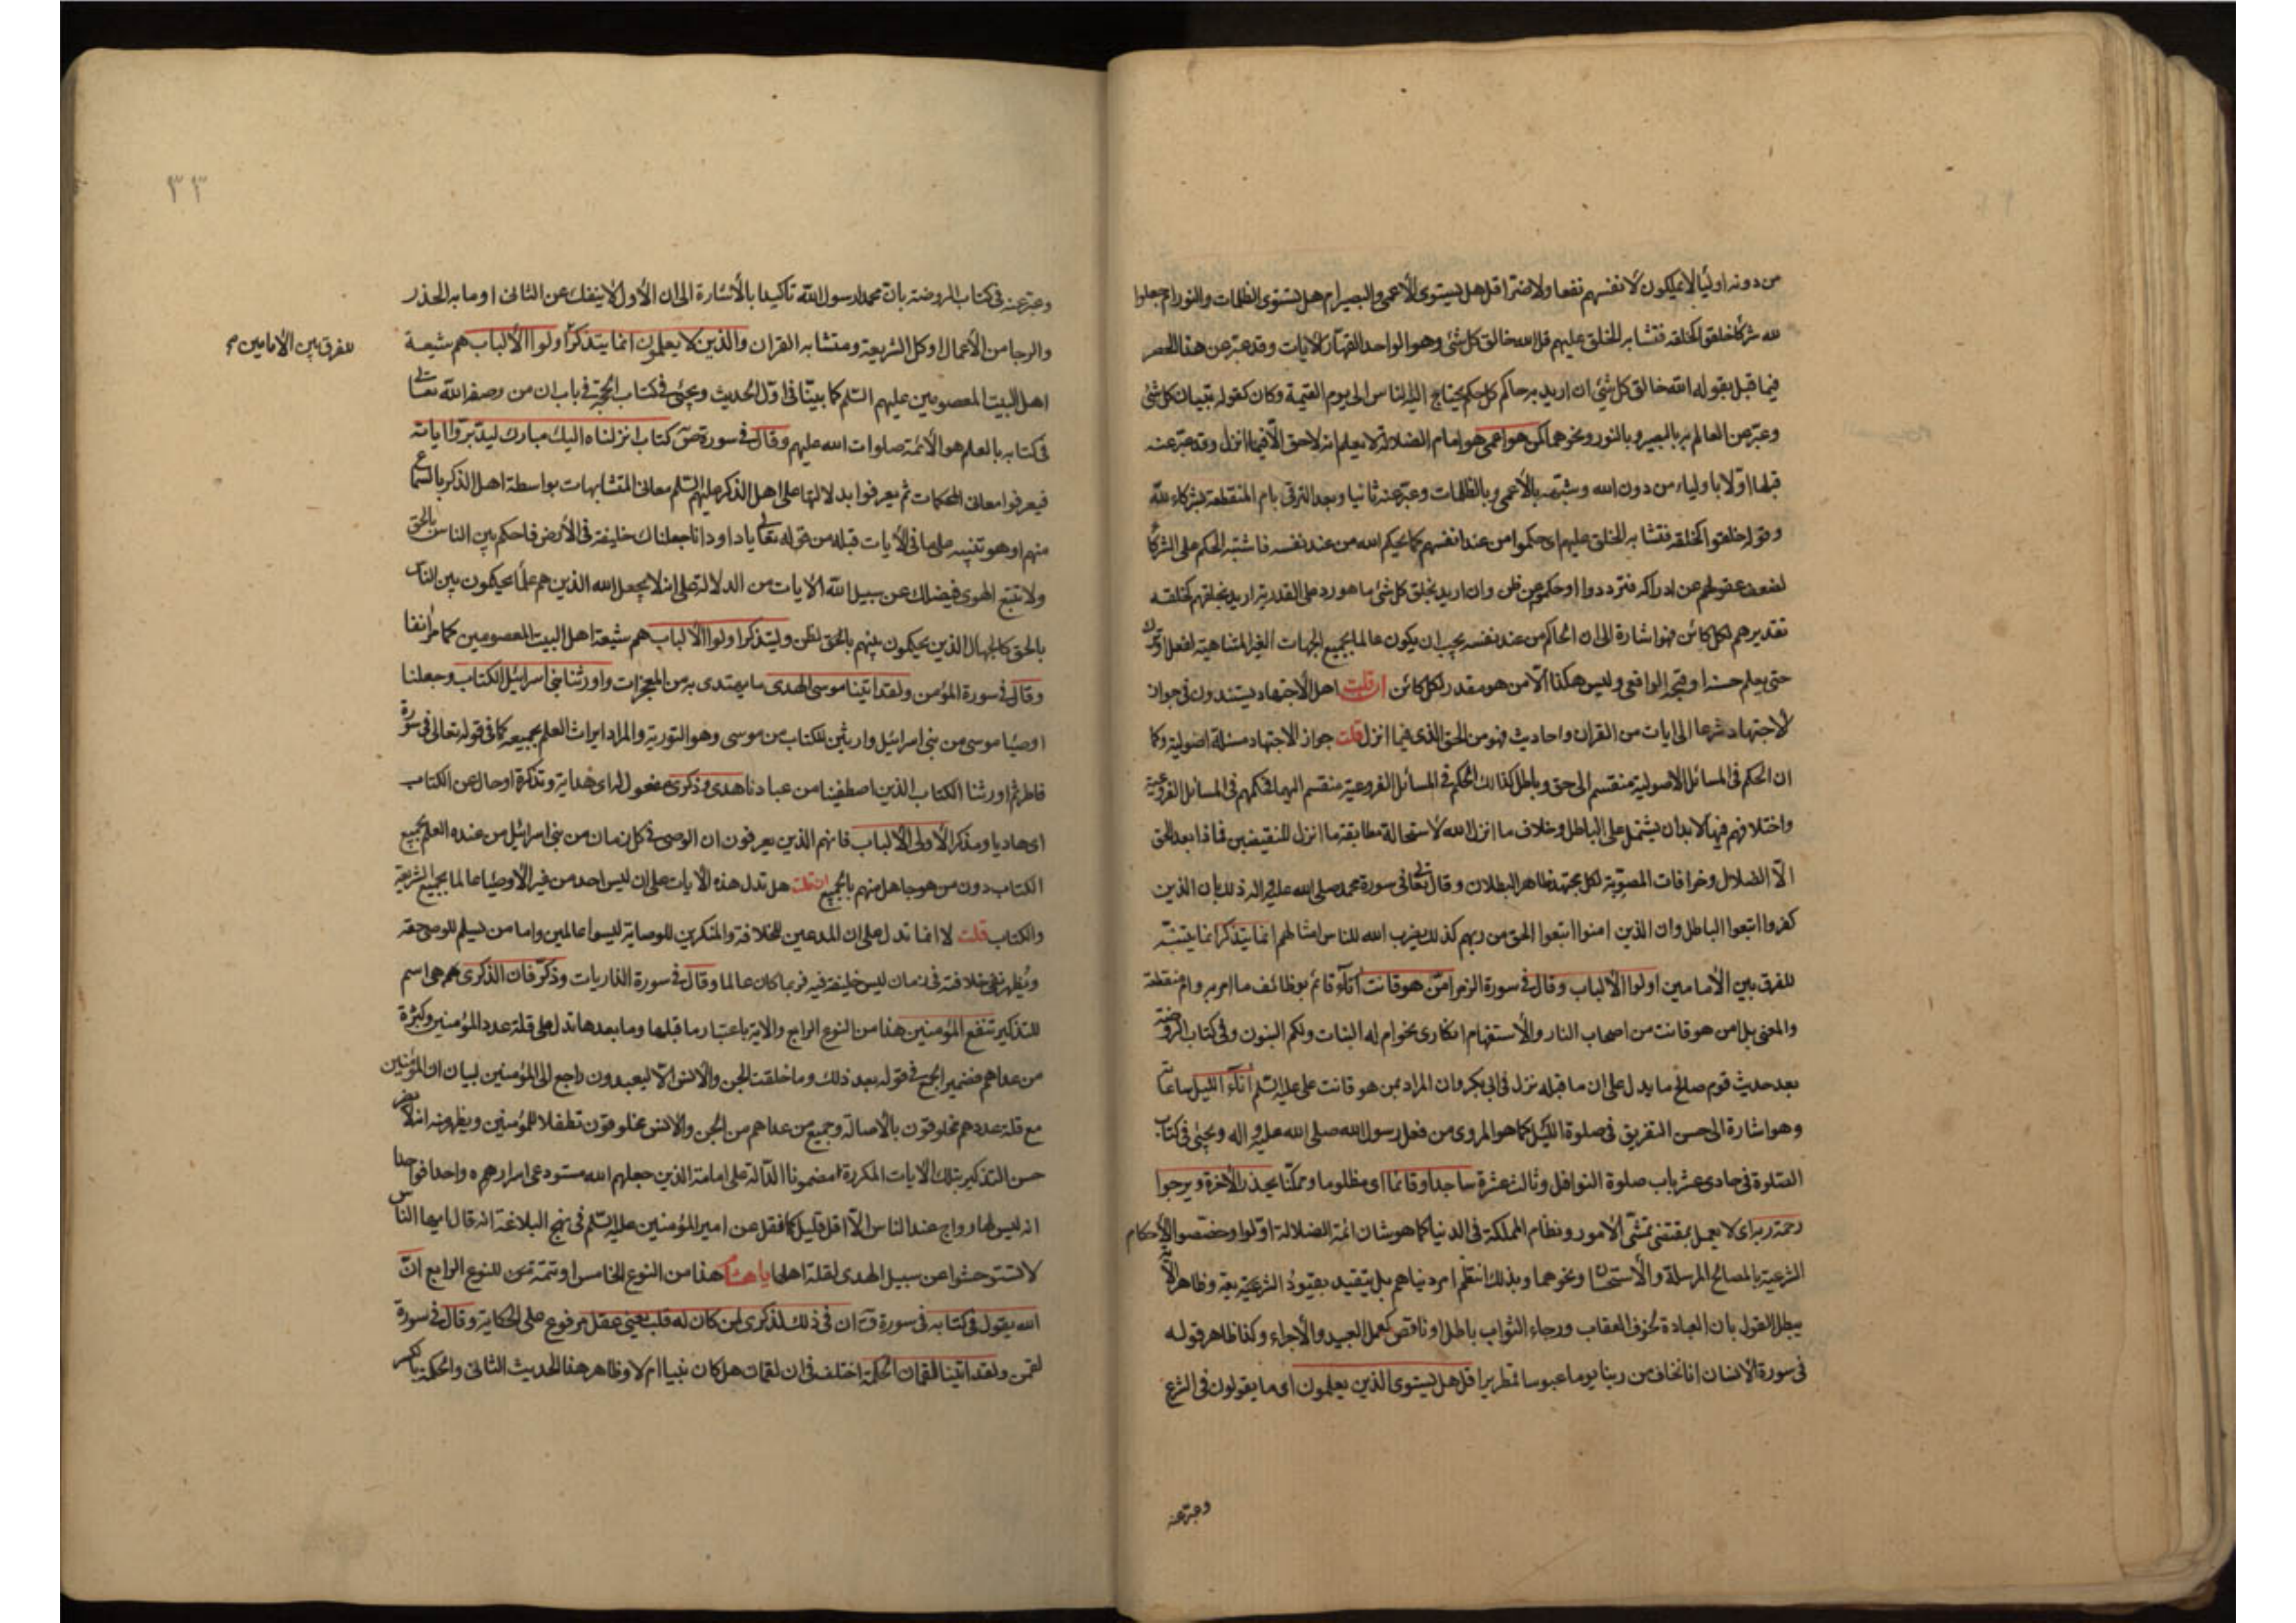 من دونه اولیا لا یملکون لانفسهم نفعا ولا ضرا قل هل یستوی الاعمی والبصیر ام هل تستوی الظلمات والنور ام جعلوا
لله شرکا خلقوا کخلقه فتشابه الخلق علیهم قل الله خالق کل شئ وهو الواحد القهار الآیات وقد عبر عن هذا
فیما قبل بقوله الله خالق کل شئ ان ارید به حاکم کل حکم یحتاج الیه الناس الی یوم القیمة وکان کقوله تبیان کل شئ
وعبر عن العالم به بالبصیر وبالنور ونحوهما کمن هو اعمی هو امام الضلالة لا یعلم انه لا حق الا فیما انزل وقد عبر عنه
قبلها اولا باولیاء من دون الله وشبهه بالأعمی وبالظلمات وعبر عنه ثانیا وبعد الترقی بام المنقطعة بشرکاء لله
وقوله خلقوا کخلقه فتشابه الخلق علیهم ای حکموا من عند انفسهم کما یحکم الله من عند نفسه فاشتبه الحکم علی الشرکا
لضعف عقولهم عن ادراکه فترددوا او حکموا عن ظن وان ارید بخلق کل شئ ما هو رد علی القدریة ارید بخلقهم کخلقه
تقدیرهم لکل کائن فهو اشارة الی ان الحاکم من عند نفسه یجب ان یکون عالما بجمیع الجهات الغیر المتناهیة لفعل او ترک
حتی یعلم حسنه او قبحه الواقعی ولیس هکذا الا من هو مقدر لکل کائن ان قلت اهل الاجتهاد یستندون فی جواز
لاجتهاد شرعا الی ایات من القران واحادیث فهو من الحق الذی فیما انزل قلت جواز الاجتهاد مسئلة اصولیة وکما
ان الحکم فی المسائل الاصولیة منقسم الی حق وباطل کذلک الحکم فی المسائل الفروعیة منقسم الیهما فحکمهم فی المسائل الفروعیة
واختلافهم فیها لابد ان یشتمل علی الباطل وخلاف ما انزل الله لاستحالة مطابقة ما انزل للنقیضین فماذا بعد الحق
الا الضلال وخرافات المصوبة لکل مجتهد ظاهر البطلان وقال تعالی فی سورة محمد صلی الله علیه واله ذلک بان الذین
کفروا اتبعوا الباطل وان الذین امنوا اتبعوا الحق من ربهم کذلک یضرب الله للناس امثالهم انما یتذکر انما یتنبه
للفرق بین الأمامین اولوا الألباب وقال فی سورة الزمر امن هو قانت آناء قائم بوظائف ما امر به وام منقطعة
والمعنی بل امن هو قانت من اصحاب النار والاستفهام انکاری نحو ام له البنات ولکم البنون وفی کتاب الروضة
بعد حدیث قوم صالح ما یدل علی ان ما قبله نزل فی ابی بکر وان المراد بمن هو قانت علی علیه السلم آناء اللیل ساعاته
وهو اشارة الی حسن التفریق فی صلوة اللیل کما هو المروی من فعل رسول الله صلی الله علیه واله ویجئ فی کتاب
الصلوة فی حادی عشر باب صلوة النوافل وثالث عشرة ساجدا وقائما ای مظلوما وممکنا یحذر الآخرة ویرجوا
رحمة ربه ای لا یعمل بمقتضی تمشی الامور ونظام المملکة فی الدنیا کما هو شان ائمة الضلالة اولوا وخصصوا الأحکام
الشرعیة بالمصالح المرسلة والاستحسان ونحوهما وبذلک انتظم امر دنیاهم بل یتقید بقیود الشرعیة وظاهر الآیة
یبطل القول بان العبادة لخوف العقاب ورجاء الثواب باطل او ناقص کعمل العبید والأجراء وکذا ظاهر قوله
فی سورة الانسان انا نخاف من ربنا یوما عبوسا قمطریرا قل هل یستوی الذین یعلمون ای ما یقولون فی الشرع
وعبر عنه
٣٣
وعبر عنه فی کتاب الروضة بان محمدا رسول الله تاکیدا بالأشارة الی ان الأول لا ینفک عن الثانی او ما به الحذر
والرجا من الأعمال او کل الشریعة ومتشابه القران والذین لا یعلمون انما یتذکر اولوا الألباب هم شیعة
للفرق بین الأمامین
اهل البیت المعصومین علیهم السلم کما بینا فی اول الحدیث ویجئ فی کتاب الحجة فی باب ان من وصفه الله تعالی
فی کتابه بالعلم هو الأئمة صلوات الله علیهم وقال فی سورة ص کتاب انزلناه الیک مبارک لیدبروا ایاته
فیعرفوا معانی المحکمات ثم یعرفوا بدلالتها علی اهل الذکر علیهم السلم معانی المتشابهات بواسطة اهل الذکر بالسماع
منهم او هو تنبیه علی ما فی الأیات قبله من قوله تعالی یاداود انا جعلناک خلیفة فی الأرض فاحکم بین الناس بالحق
ولا تتبع الهوی فیضلک عن سبیل الله الآیات من الدلالة علی انه لا یجعل الله الذین هم علما یحکمون بین الناس
بالحق کالجهال الذین یحکمون بینهم بالحق لظن ولیتذکر اولوا الألباب هم شیعة اهل البیت المعصومین کما مر انفا
وقال فی سورة المؤمن ولقد اتینا موسی الهدی ما یهتدی به من المعجزات واورثنا بنی اسرائیل الکتاب وجعلنا
اوصیا موسی من بنی اسرائیل وارثین للکتاب من موسی وهو التوریة والمراد ایراث العلم بجمیعه کما فی قوله تعالی فی سورة
فاطر ثم اورثنا الکتاب الذین اصطفینا من عبادنا هدی وذکری مفعول له ای هدایة وتذکرة او حال عن الکتاب
ای هادیا ومذکرا لأولی الألباب فانهم الذین یعرفون ان الوصی فی کل زمان من بنی اسرائیل من عنده العلم بجمیع
الکتاب دون من هو جاهل منهم بالجمیع ان قلت هل تدل هذه الأیات علی ان لیس احد من غیر الأوصیا عالما بجمیع الشریعة
والکتاب قلت لا انما تدل علی ان المدعین للخلافة والمنکرین للوصایة لیسوا عالمین واما من یسلم للوصی حقه
ویظهر نفی خلافته فی زمان لیس خلیفة فیه فربما کان عالما وقال فی سورة الذاریات وذکر فان الذکری هی اسم
للتذکیر تنفع المؤمنین هذا من النوع الرابع والایة باعتبار ما قبلها وما بعدها تدل علی قلة عدد المؤمنین وکثرة
من عداهم فضمیر الجمع فی قوله بعد ذلک وما خلقت الجن والانس الا لیعبدون راجع الی المؤمنین لبیان ان المؤمنین
مع قلة عددهم مخلوقون بالأصالة وجمیع من عداهم من الجن والانس مخلوقون تطفلا للمؤمنین ویظهر منه انه لا یضر
حسن التذکیر بتلک الآیات المکررة مضمونا الدالة علی امامة الذین جعلهم الله مستودعی اسرارهم واحدا فواحدا
انه لیس لها رواج عند الناس الا اقل قلیل کما نقل عن امیر المؤمنین علیه السلم فی نهج البلاغة انه قال ایها الناس
لا تستوحشوا عن سبیل الهدی لقلة اهلها یا هشام هذا من النوع الخامس او تتمة للنوع الرابع ان
الله یقول فی کتابه فی سورة ق ان فی ذلک لذکری لمن کان له قلب یعنی عقل مرفوع علی الحکایة وقال فی سورة
لقمن ولقد اتینا لقمان الحکمة اختلف فی ان لقمان هل کان نبیا ام لا وظاهر هذا الحدیث الثانی والحکمة بالکسر